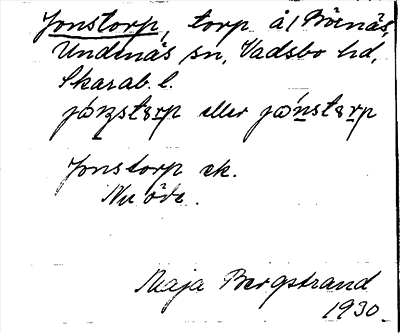 Jonstorp, torp å/ Börnäs,
Undenäs sn, Vadsbo hd,
Skarab. l.
eller
Jonstorp ek.
Nu öde.
Maja Bergstrand
1930.